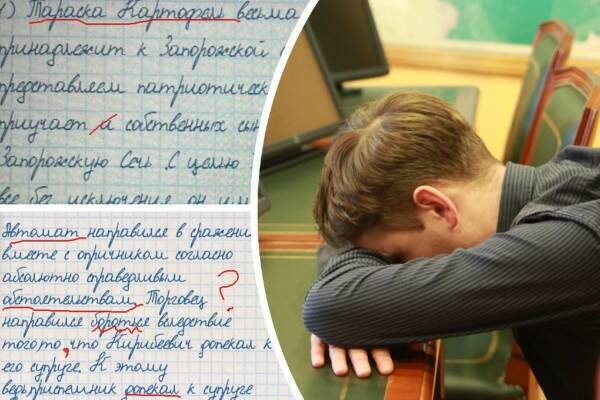 1) Тараска Картофель весьма
принадлежит к Запорожской
представляем патриотическ
приучает и собственных сын
Запорожскую Сечь. С целью
все без исключения он им
Автомат направился в сражени
вместе с опричником согласно
абсолютно справедливым
абстоетельствам. Торговец ?
направился бороться вследствие
того то, что Кирибеевич допекал к
его супруге. К этому
ведьприспешник допекал к супруге